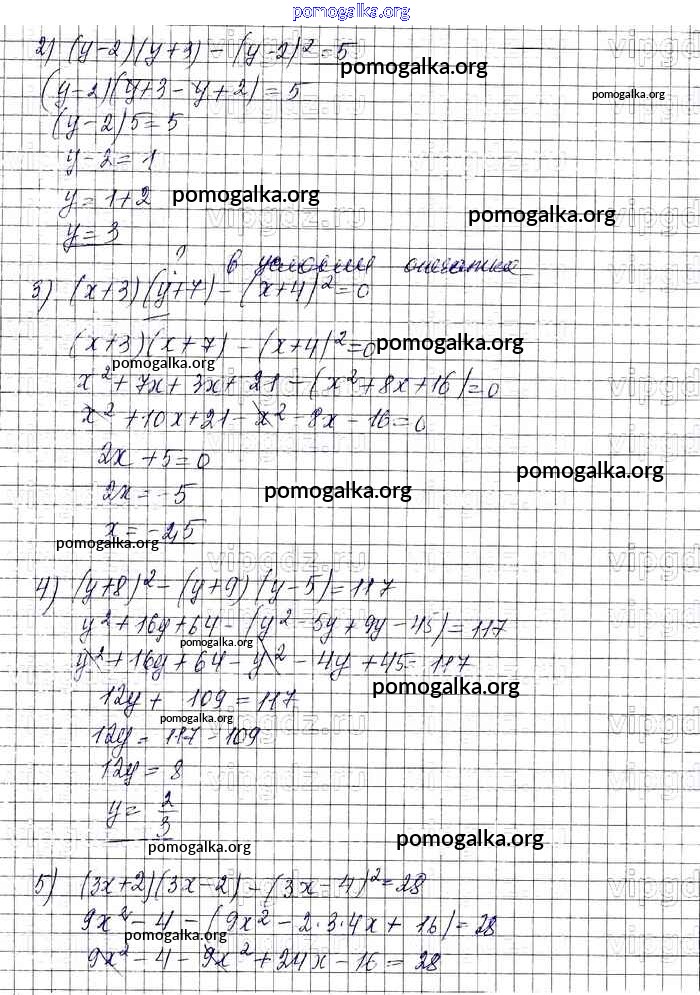 pomogalka.org
2) (y-2)(y+3) - (y-2)² = 5
pomogalka.org
(y-2)(y+3-y+2) = 5
pomogalka.org
(y-2)5 = 5
y-2 = 1
y = 1+2
pomogalka.org
pomogalka.org
y = 3
? в условии опечатка
3) (x+3)(y+7) - (x+4)² = 0
(x+3)(x+7) - (x+4)² = 0
pomogalka.org
pomogalka.org
x² + 7x + 3x + 21 - (x² + 8x + 16) = 0
x² + 10x + 21 - x² - 8x - 16 = 0
2x + 5 = 0
pomogalka.org
2x = -5
pomogalka.org
x = -2,5
pomogalka.org
vipgdz.ru
4) (y+8)² - (y+9)(y-5) = 117
y² + 16y + 64 - (y² - 5y + 9y - 45) = 117
pomogalka.org
y² + 16y + 64 - y² - 4y + 45 = 117
pomogalka.org
12y + 109 = 117
pomogalka.org
12y = 117 - 109
12y = 8
y = 2/3
pomogalka.org
pomogalka.org
5) (3x+2)(3x-2) - (3x-4)² = 28
9x² - 4 - (9x² - 2·3·4x + 16) = 28
pomogalka.org
9x² - 4 - 9x² + 24x - 16 = 28